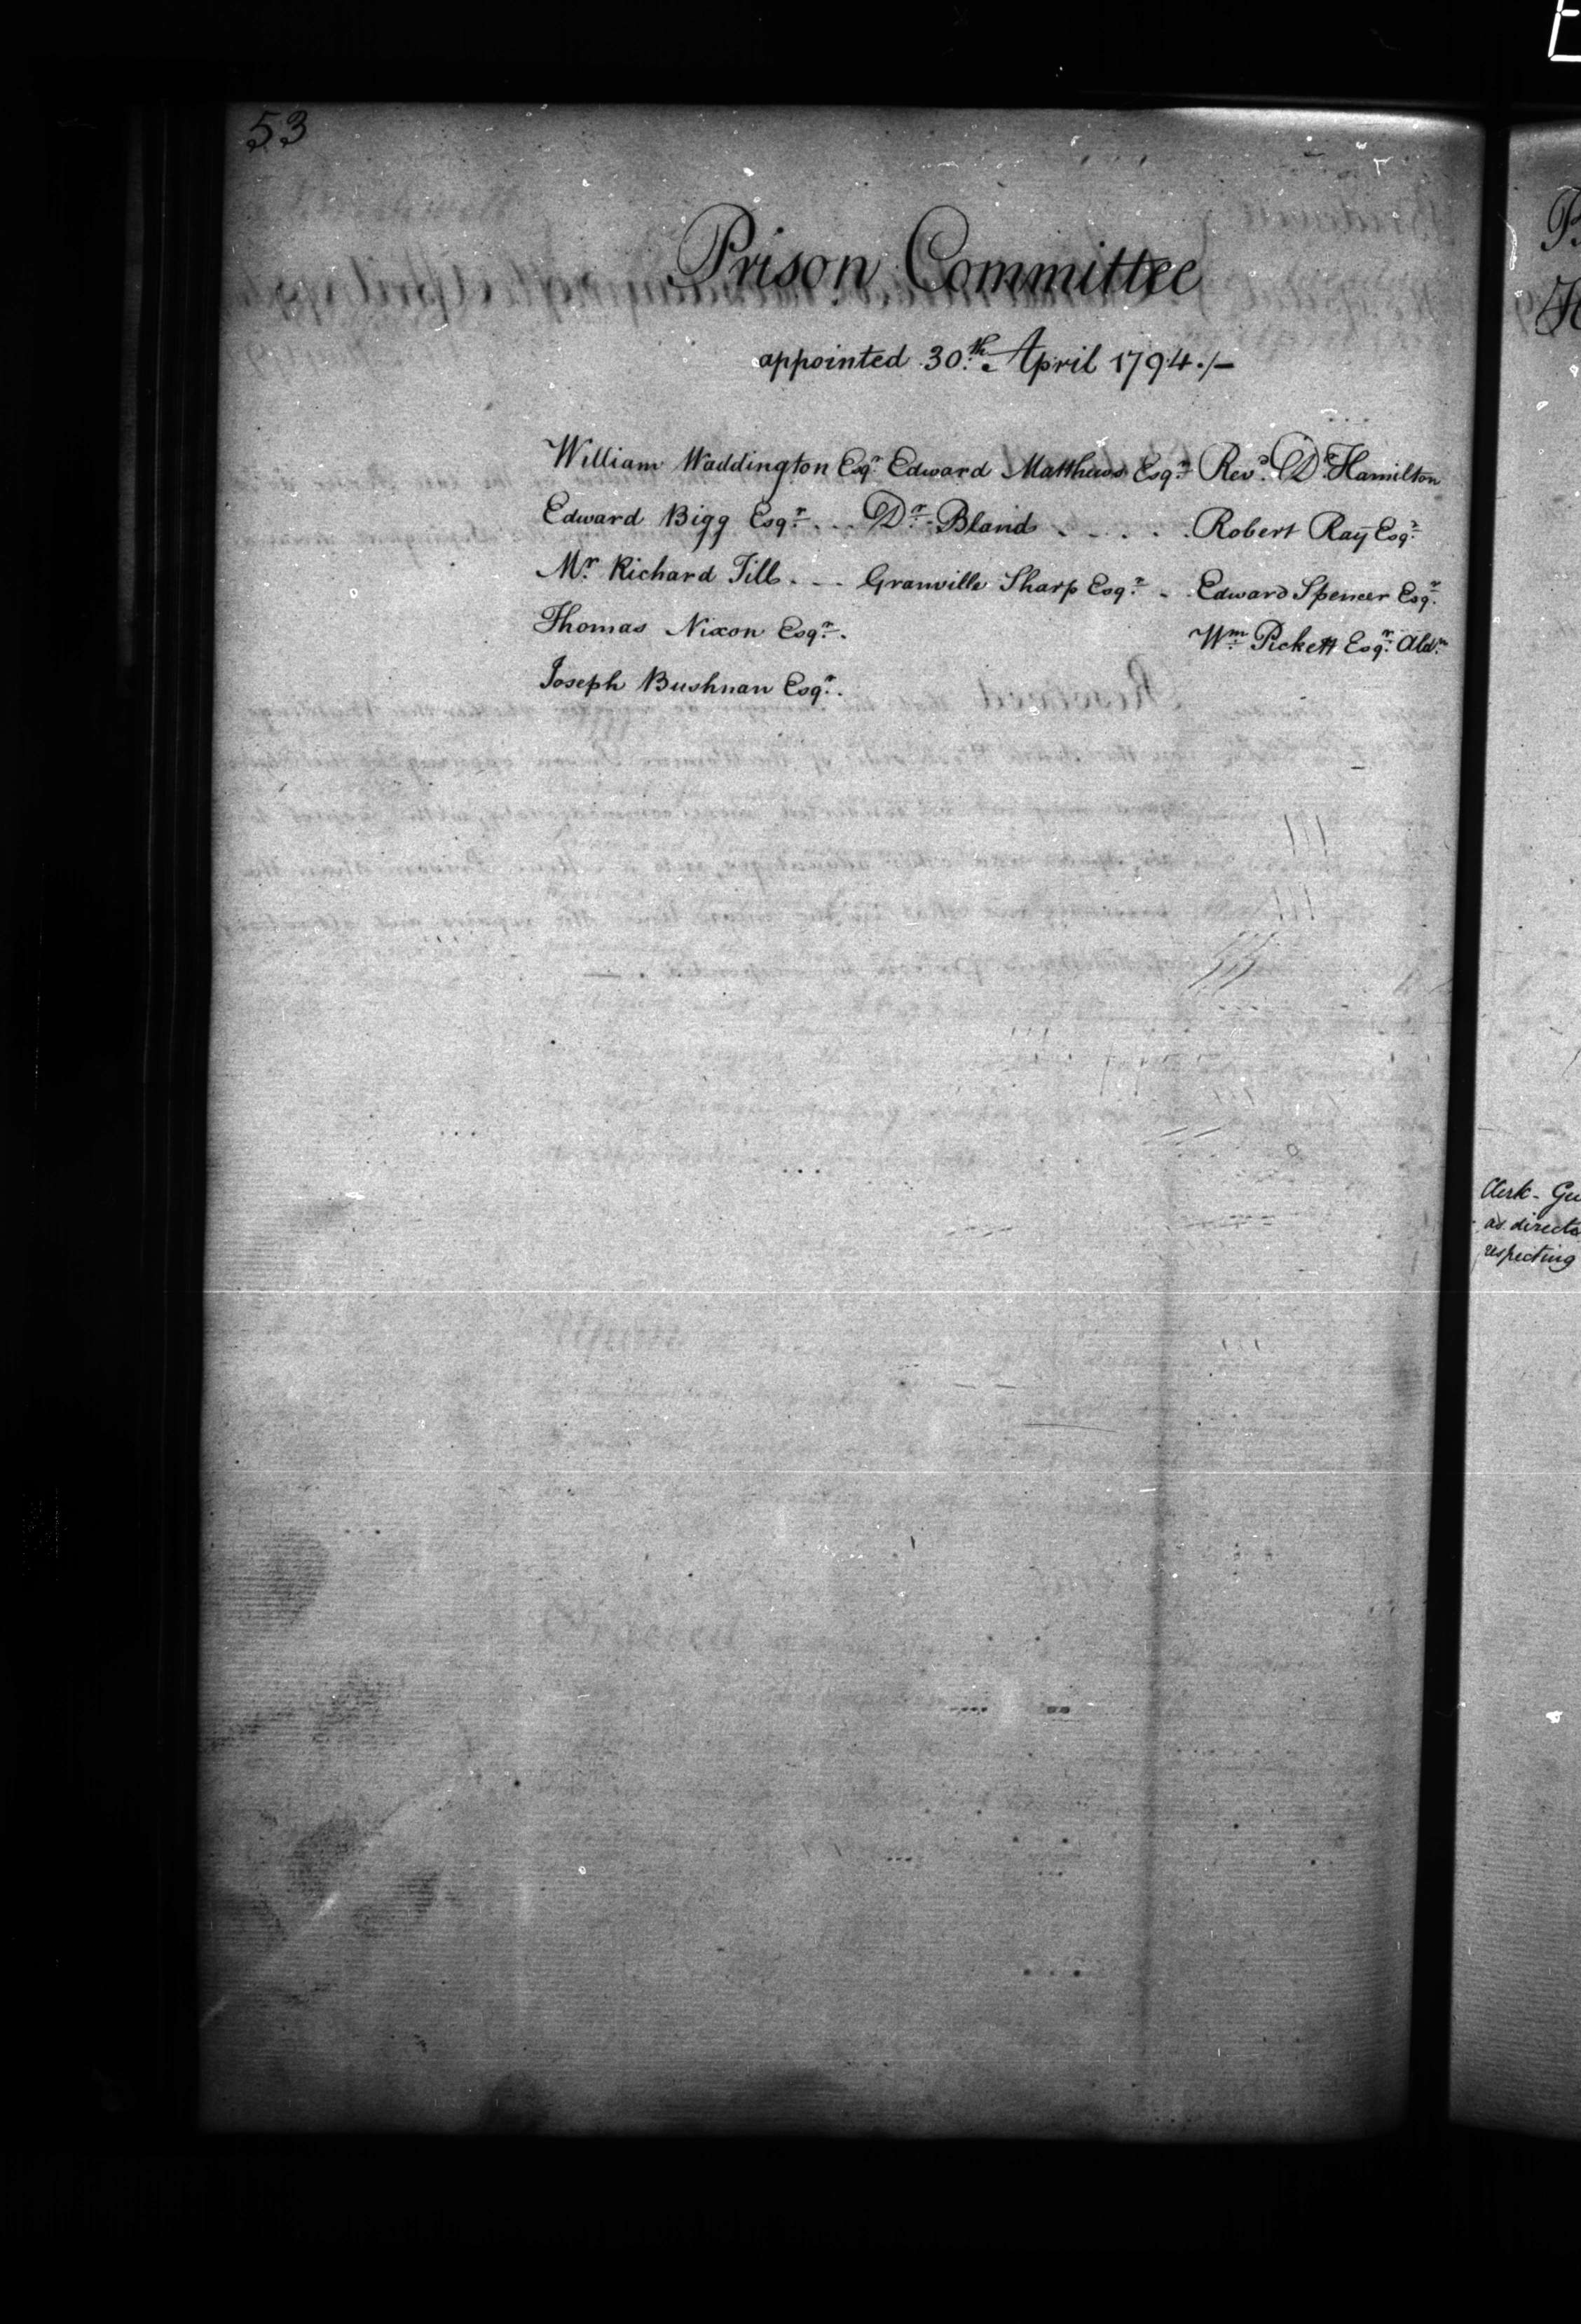 53
Prison Committee
appointed 30.th April 1794./-
William Waddington Esqr. Edward Matthews Esqr. Revd. Dr. Hamilton
Edward Bigg Esqr. . . . Dr. Bland . . . . . Robert Ray Esqr.
Mr. Richard Till . . . Granville Sharp Esqr. . Edward Spencer Esqr.
Thomas Nixon Esqr. Wm. Pickett Esqr. Aldn.
Joseph Bushnan Esqr.
Clerk - 
as
respecting